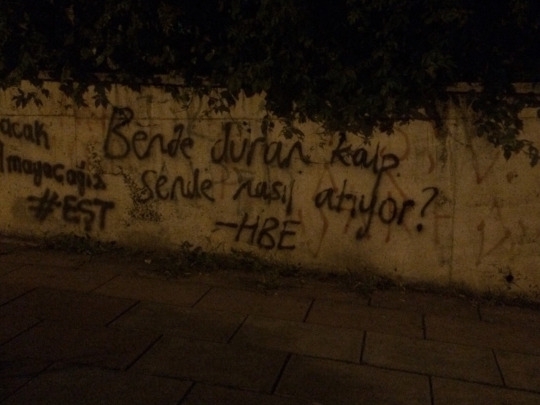 acak
lmayacağız
#EŞT
Bende duran kalp
sende nasıl atıyor?
-HBE